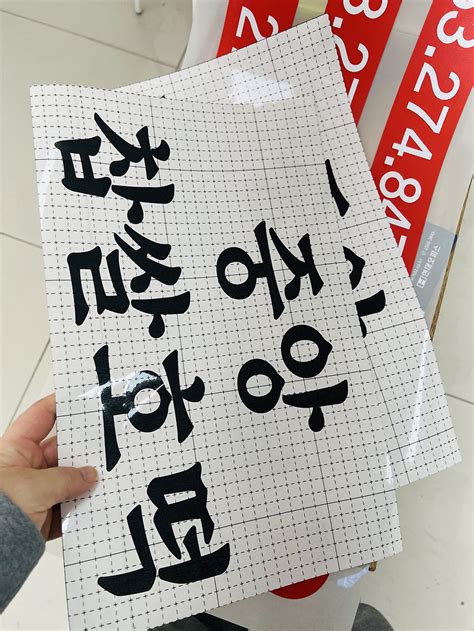 중앙
찹쌀호떡
3.274.
3.274.847